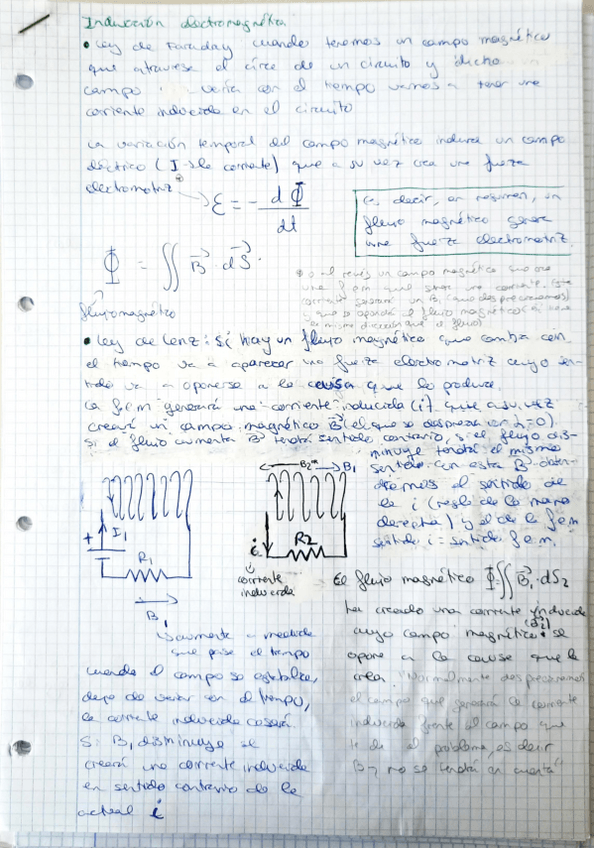 Inducción electromagnética
• Ley de Faraday cuando tenemos un campo magnético
que atraviesa el área de un circuito y dicho
campo varía con el tiempo vamos a tener una
corriente inducida en el circuito
La variación temporal del campo magnético induce un campo
eléctrico (I de corriente) que a su vez crea una fuerza
electromotriz
ε = - dΦ
dt
Es decir, en resumen, un
flujo magnético genera
una fuerza electromotriz
Φ = ∬ B⃗ · dS⃗
flujo magnético
o al revés un campo magnético
una fem que genera una corriente. Esta
corriente generará un B, (que despreciaremos)
y que se opondrá al flujo magnético
• Ley de Lenz: Si hay un flujo magnético que cambia con
el tiempo va a aparecer una fuerza electromotriz cuyo sen-
tido va a oponerse a la causa que lo produce.
La fem generará una corriente inducida (i) que a su vez
creará un campo magnético B⃗ (el que se desprecia en
Si el flujo aumenta B tendrá sentido contrario, si el flujo dis-
minuye tendrá el mismo
sentido. Con esta B obten-
dremos el sentido de
la i (regla de la mano
derecha) y el de la fem
sentido i = sentido fem.
+ I₁
R₁
B₁
↳ aumenta a medida
que pasa el tiempo
B₂ B₁
i R2
corriente
inducida
El flujo magnético Φ = ∬ B⃗₁ · dS₂
ha creado una corriente inducida
cuyo campo magnético se
opone a la causa que la
crea. Normalmente despreciaremos
el campo que generará la corriente
inducida frente al campo que
te da el problema, es decir
B no se tendrá en cuenta
Cuando el campo se estabilice,
deje de variar en el tiempo,
la corriente inducida cesará.
Si B₁ disminuye se
creará una corriente inducida
en sentido contrario de la
actual i